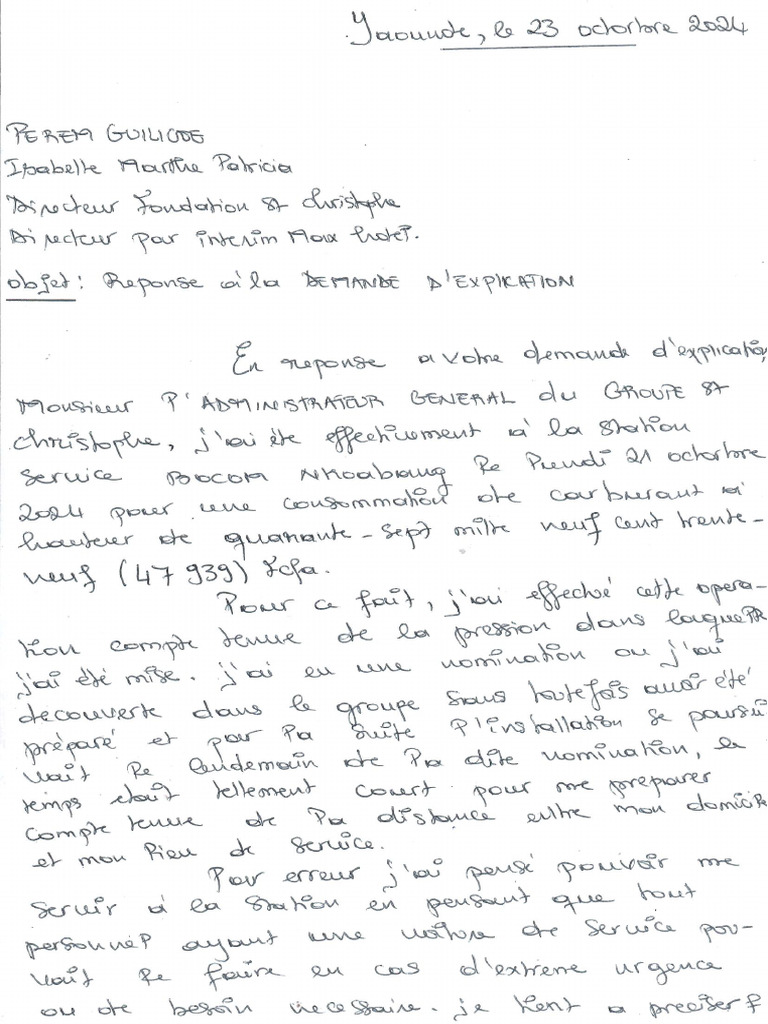 Yaounde, le 23 octorbre 2024
PEREM GUILICDE
Isabelle Marthe Patricia
Directeur Fondation St Christophe
Directeur par interim Max hotel.
Objet : Reponse à la DEMANDE D'EXPLKATION
En reponse a votre demande d'explication,
Monsieur l'ADMINISTRATEUR GENERAL du GROUPE St
Christophe, j'ai éte effectivement à la station
Service BOCOM Nkoabang le lundi 21 octorbre
2024 pour une consommation de carburant à
hauteur de quarante-sept mille neuf cent trente-
neuf (47 939) Fcfa.
Pour ce fait, j'ai effectué cette opera-
tion compte tenue de la pression dans laquelle
j'ai été mise. j'ai eu une nomination ou j'ai
decouverte dans le groupe sans toutefois avoir été
préparé et par la suite l'installation se poursui
vait le lendemain de la dite nomination, le
temps etait tellement court pour me preparer
compte tenue de la distance entre mon domicile
et mon lieu de service.
Par erreur j'ai pensé pouvoir me
servir à la station en pensant que tout
personnel ayant une voiture de service pou-
vait le faire en cas d'extreme urgence
ou de besoin necessaire. je tient a preciser